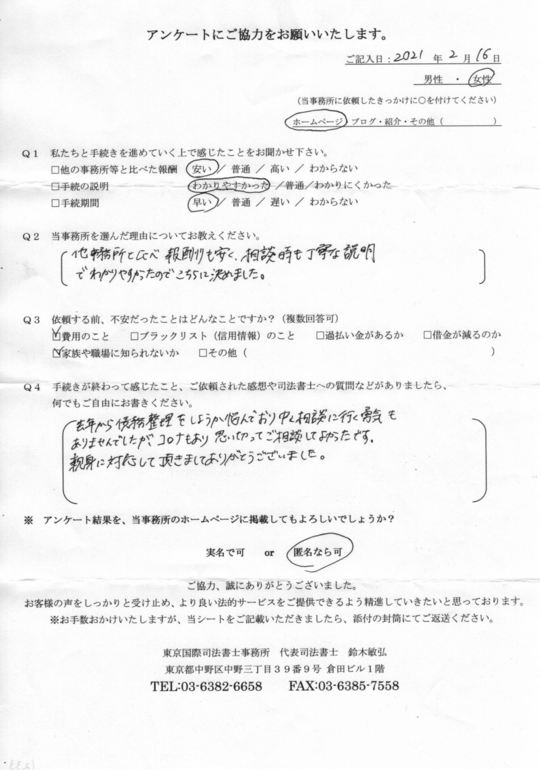 アンケートにご協力をお願いいたします。
ご記入日：2021 年 2 月 16 日
男性 ・ 女性
（当事務所に依頼したきっかけに○を付けてください）
ホームページ・ブログ・紹介・その他（　　　　　　）
Ｑ１　私たちと手続きを進めていく上で感じたことをお聞かせ下さい。
□他の事務所等と比べた報酬　安い ／ 普通 ／ 高い ／ わからない
□手続の説明　わかりやすかった ／普通／わかりにくかった
□手続期間　早い ／ 普通 ／ 遅い ／ わからない
Ｑ２　当事務所を選んだ理由についてお教えください。
他事務所と比べ 報酬も安く、相談時も丁寧な説明
でわかりやすかったのでこちらに決めました。
Ｑ３　依頼する前、不安だったことはどんなことですか？（複数回答可）
☑費用のこと　□ブラックリスト（信用情報）のこと　□過払い金があるか　□借金が減るのか
☑家族や職場に知られないか　□その他（　　　　　　）
Ｑ４　手続きが終わって感じたこと、ご依頼された感想や司法書士への質問などがありましたら、
何でもご自由にお書きください。
去年から債務整理をしようか悩んでおり中々相談に行く勇気も
ありませんでしたが、コロナもあり 思い切ってご相談してよかったです。
親身に対応して頂きましてありがとうございました。
※　アンケート結果を、当事務所のホームページに掲載してもよろしいでしょうか？
実名で可　or　匿名なら可
ご協力、誠にありがとうございました。
お客様の声をしっかりと受け止め、より良い法的サービスをご提供できるよう精進していきたいと思っております。
※お手数おかけいたしますが、当シートをご記載いただきましたら、添付の封筒にてご返送ください。
東京国際司法書士事務所　代表司法書士　鈴木敏弘
東京都中野区中野三丁目３９番９号 倉田ビル１階
TEL:03-6382-6658　FAX:03-6385-7558